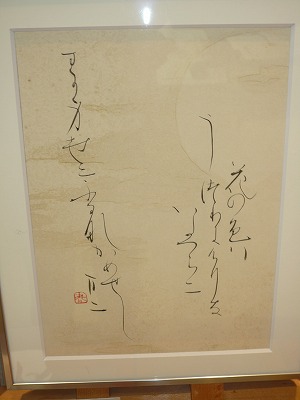 花の色は
うつりにけりな
いたつらに
わか身世にふる
なかめせし
まに